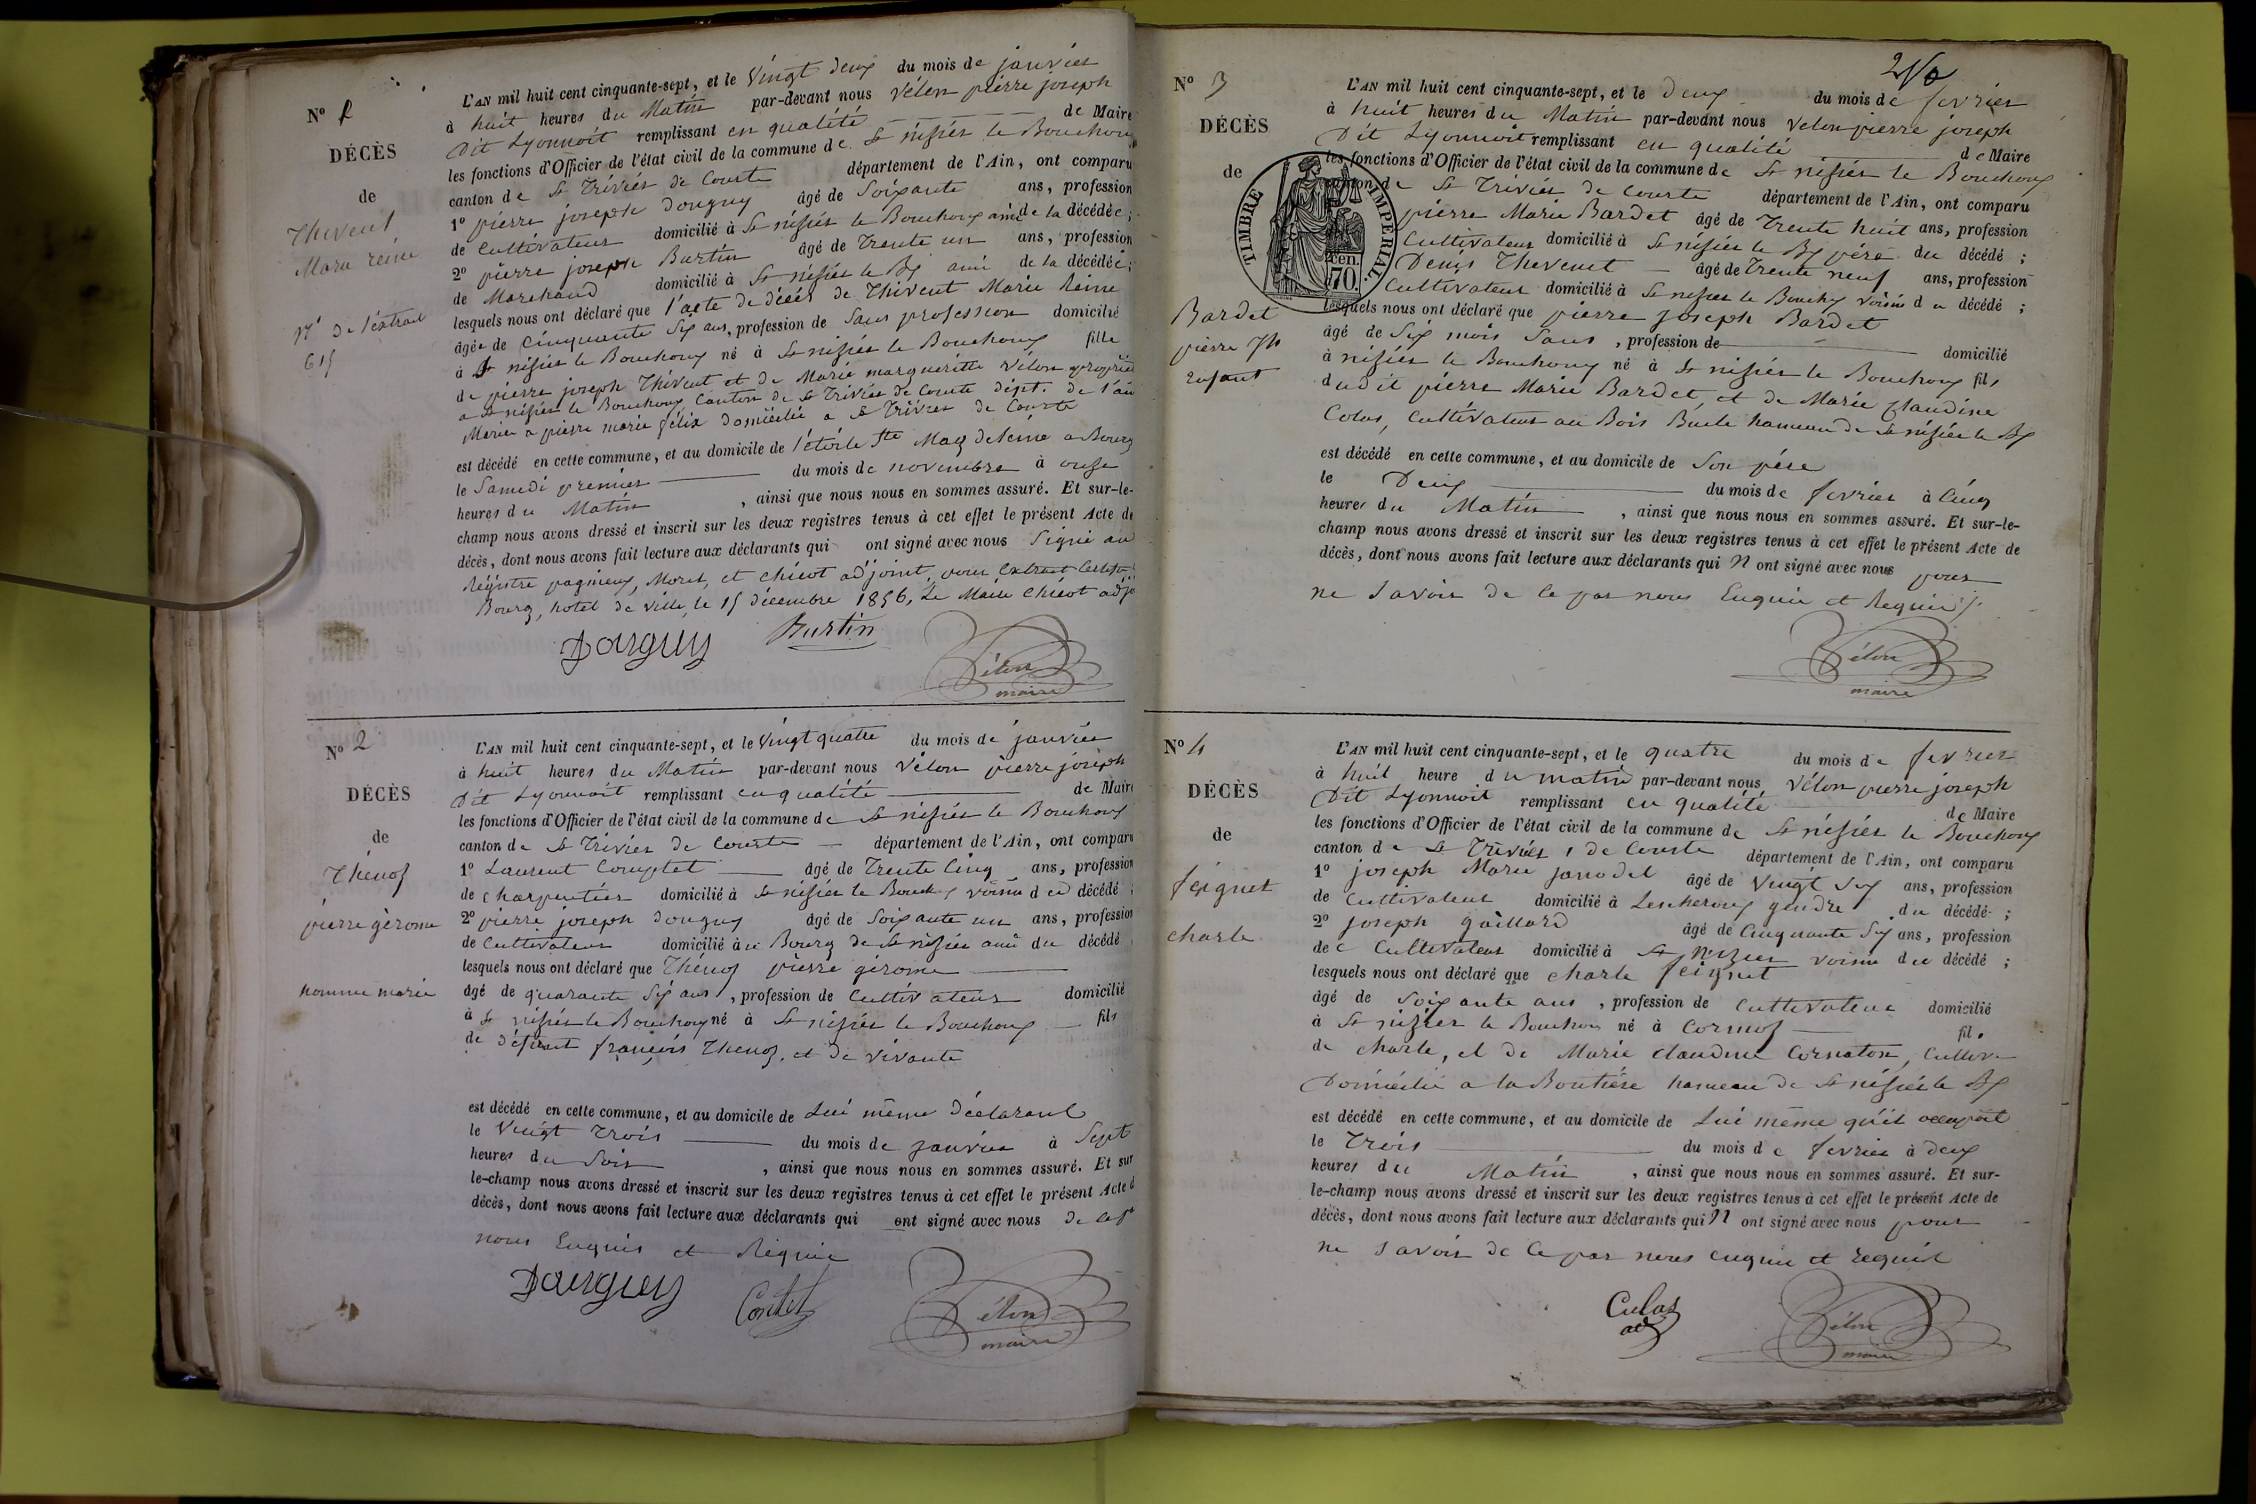 N° 1
DÉCÈS
de
Thivent
Marie reine
N° de l'extrait
615
L'AN mil huit cent cinquante-sept, et le Vingt deux du mois de janvier
à huit heures du Matin par-devant nous Vélon pierre joseph
Dit Lyonnoit remplissant en qualité de Maire
les fonctions d'Officier de l'état civil de la commune de St nisier le Bouchoux
canton de St Trivier de Courte département de l'Ain, ont comparu
1° pierre joseph Donguy âgé de Soixante ans, profession
de Cultivateur domicilié à St nisier le Bouchoux ami de la décédée ;
2° pierre joseph Burtin âgé de Trente un ans, profession
de Marchand domicilié à St nisier le Bx ami de la décédée ;
lesquels nous ont déclaré que l'acte de décés de Thivent Marie Reine
âgée de Cinquante Six ans, profession de Sans profession domicilié
à St nisier le Bouchoux né à St nisier le Bouchoux fille
de pierre joseph Thivent et de Marie margueritte Vélon
a St nisier le Bouchoux Canton de St Trivier de Courte dépt. de l'ain
Mariée a pierre marie félix domicilié a St Trivier de Courte
est décédé en cette commune, et au domicile de l'étoile Ste Magdeleine a Bourg
le Samedi premier du mois de novembre à onze
heures du Matin , ainsi que nous nous en sommes assuré. Et sur-le-
champ nous avons dressé et inscrit sur les deux registres tenus à cet effet le présent Acte de
décès, dont nous avons fait lecture aux déclarants qui ont signé avec nous Signé au
Régistre pagneux, Moret, et chicot adjoint, pour Extrait
Bourg, hotel de ville, le 15 décembre 1856, Le Maire Chicot adjt
Donguy Burtin Vélon
maire
N° 2
DÉCÈS
de
Thénoz
pierre gèrome
homme marié
L'AN mil huit cent cinquante-sept, et le Vingt quatre du mois de janvier
à huit heures du Matin par-devant nous Vélon pierre joseph
Dit Lyonnoit remplissant en qualité de Maire
les fonctions d'Officier de l'état civil de la commune de St nisier le Bouchoux
canton de St Trivier de Courte département de l'Ain, ont comparu
1° Laurent Comptet âgé de Trente Cinq ans, profession
de Charpentier domicilié à St nisier le Bouchx voisin du décédé ;
2° pierre joseph Donguy âgé de Soixante un ans, profession
de Cultivateur domicilié à u Bourg de St nisier ami du décédé
lesquels nous ont déclaré que Thénoz pierre gérome
âgé de quarante Six ans , profession de Cultivateur domicilié
à St nisier le Bouchoux né à St nisier le Bouchoux fils
de défunt françois Thenoz, et de vivante
est décédé en cette commune, et au domicile de Lui même déclarant
le Vingt Trois du mois de janvier à Sept
heures du Soir , ainsi que nous nous en sommes assuré. Et sur
le-champ nous avons dressé et inscrit sur les deux registres tenus à cet effet le présent Acte d
décès, dont nous avons fait lecture aux déclarants qui ont signé avec nous de ce pr
nous Enquis et Réquis
Donguy Vélon
maire
250
N° 3
DÉCÈS
de
Bardet
pierre Jh
Enfant
TIMBRE IMPÉRIAL.
70 cen.
L'AN mil huit cent cinquante-sept, et le deux du mois de fevrier
à huit heures du Matin par-devant nous Velon pierre joseph
Dit Lyonnoit remplissant en qualité de Maire
les fonctions d'Officier de l'état civil de la commune de St nisier le Bouchoux
canton de St Trivier de Courte département de l'Ain, ont comparu
pierre Marie Bardet âgé de Trente huit ans, profession
Cultivateur domicilié à St nisier le Bx père du décédé ;
Denis Thevenet âgé de Trente neuf ans, profession
Cultivateur domicilié à St nisier le Bouchx voisin du décédé ;
lesquels nous ont déclaré que pierre joseph Bardet
âgé de Six mois Sans , profession de domicilié
à nisier le Bouchoux né à St nisier le Bouchoux fils
dudit pierre Marie Bardet, et de Marie Claudine
Colas, Cultivateur au Bois Burle hameau de St nisier le Bx
est décédé en cette commune, et au domicile de Son père
le Deux du mois de fevrier à Cinq
heures du Matin , ainsi que nous nous en sommes assuré. Et sur-le-
champ nous avons dressé et inscrit sur les deux registres tenus à cet effet le présent Acte de
décès, dont nous avons fait lecture aux déclarants qui N ont signé avec nous pour
ne Savoir de Ce par nous Enquis et Requis
Vélon
maire
N° 4
DÉCÈS
de
feignet
charle
L'AN mil huit cent cinquante-sept, et le quatre du mois de fevrier
à huit heure du matin par-devant nous Vélon pierre joseph
Dit Lyonnoit remplissant en qualité de Maire
les fonctions d'Officier de l'état civil de la commune de St nisier le Bouchoux
canton de St Trivier de Courte département de l'Ain, ont comparu
1° joseph Marie janodet âgé de Vingt Six ans, profession
de Cultivateur domicilié à Lescheroux gendre du décédé ;
2° joseph gaillard âgé de Cinquante Six ans, profession
de Cultivateur domicilié à St Nizier voisin du décédé ;
lesquels nous ont déclaré que charle feignet
âgé de Soixante ans , profession de Cultivateur domicilié
à St nizier le Bouchou né à Cormoz fils
de charle, et de Marie claudine Cornaton, Cultiv
Domicilié a la Boutière hameau de St nisier le Bx
est décédé en cette commune, et au domicile de Lui même qu'il occupoit
le Trois du mois de fevrier à deux
heures du Matin , ainsi que nous nous en sommes assuré. Et sur-
le-champ nous avons dressé et inscrit sur les deux registres tenus à cet effet le présent Acte de
décès, dont nous avons fait lecture aux déclarants qui N ont signé avec nous pour
ne Savoir de Ce par nous enquis et requis
Culas
adj
Vélon
maire